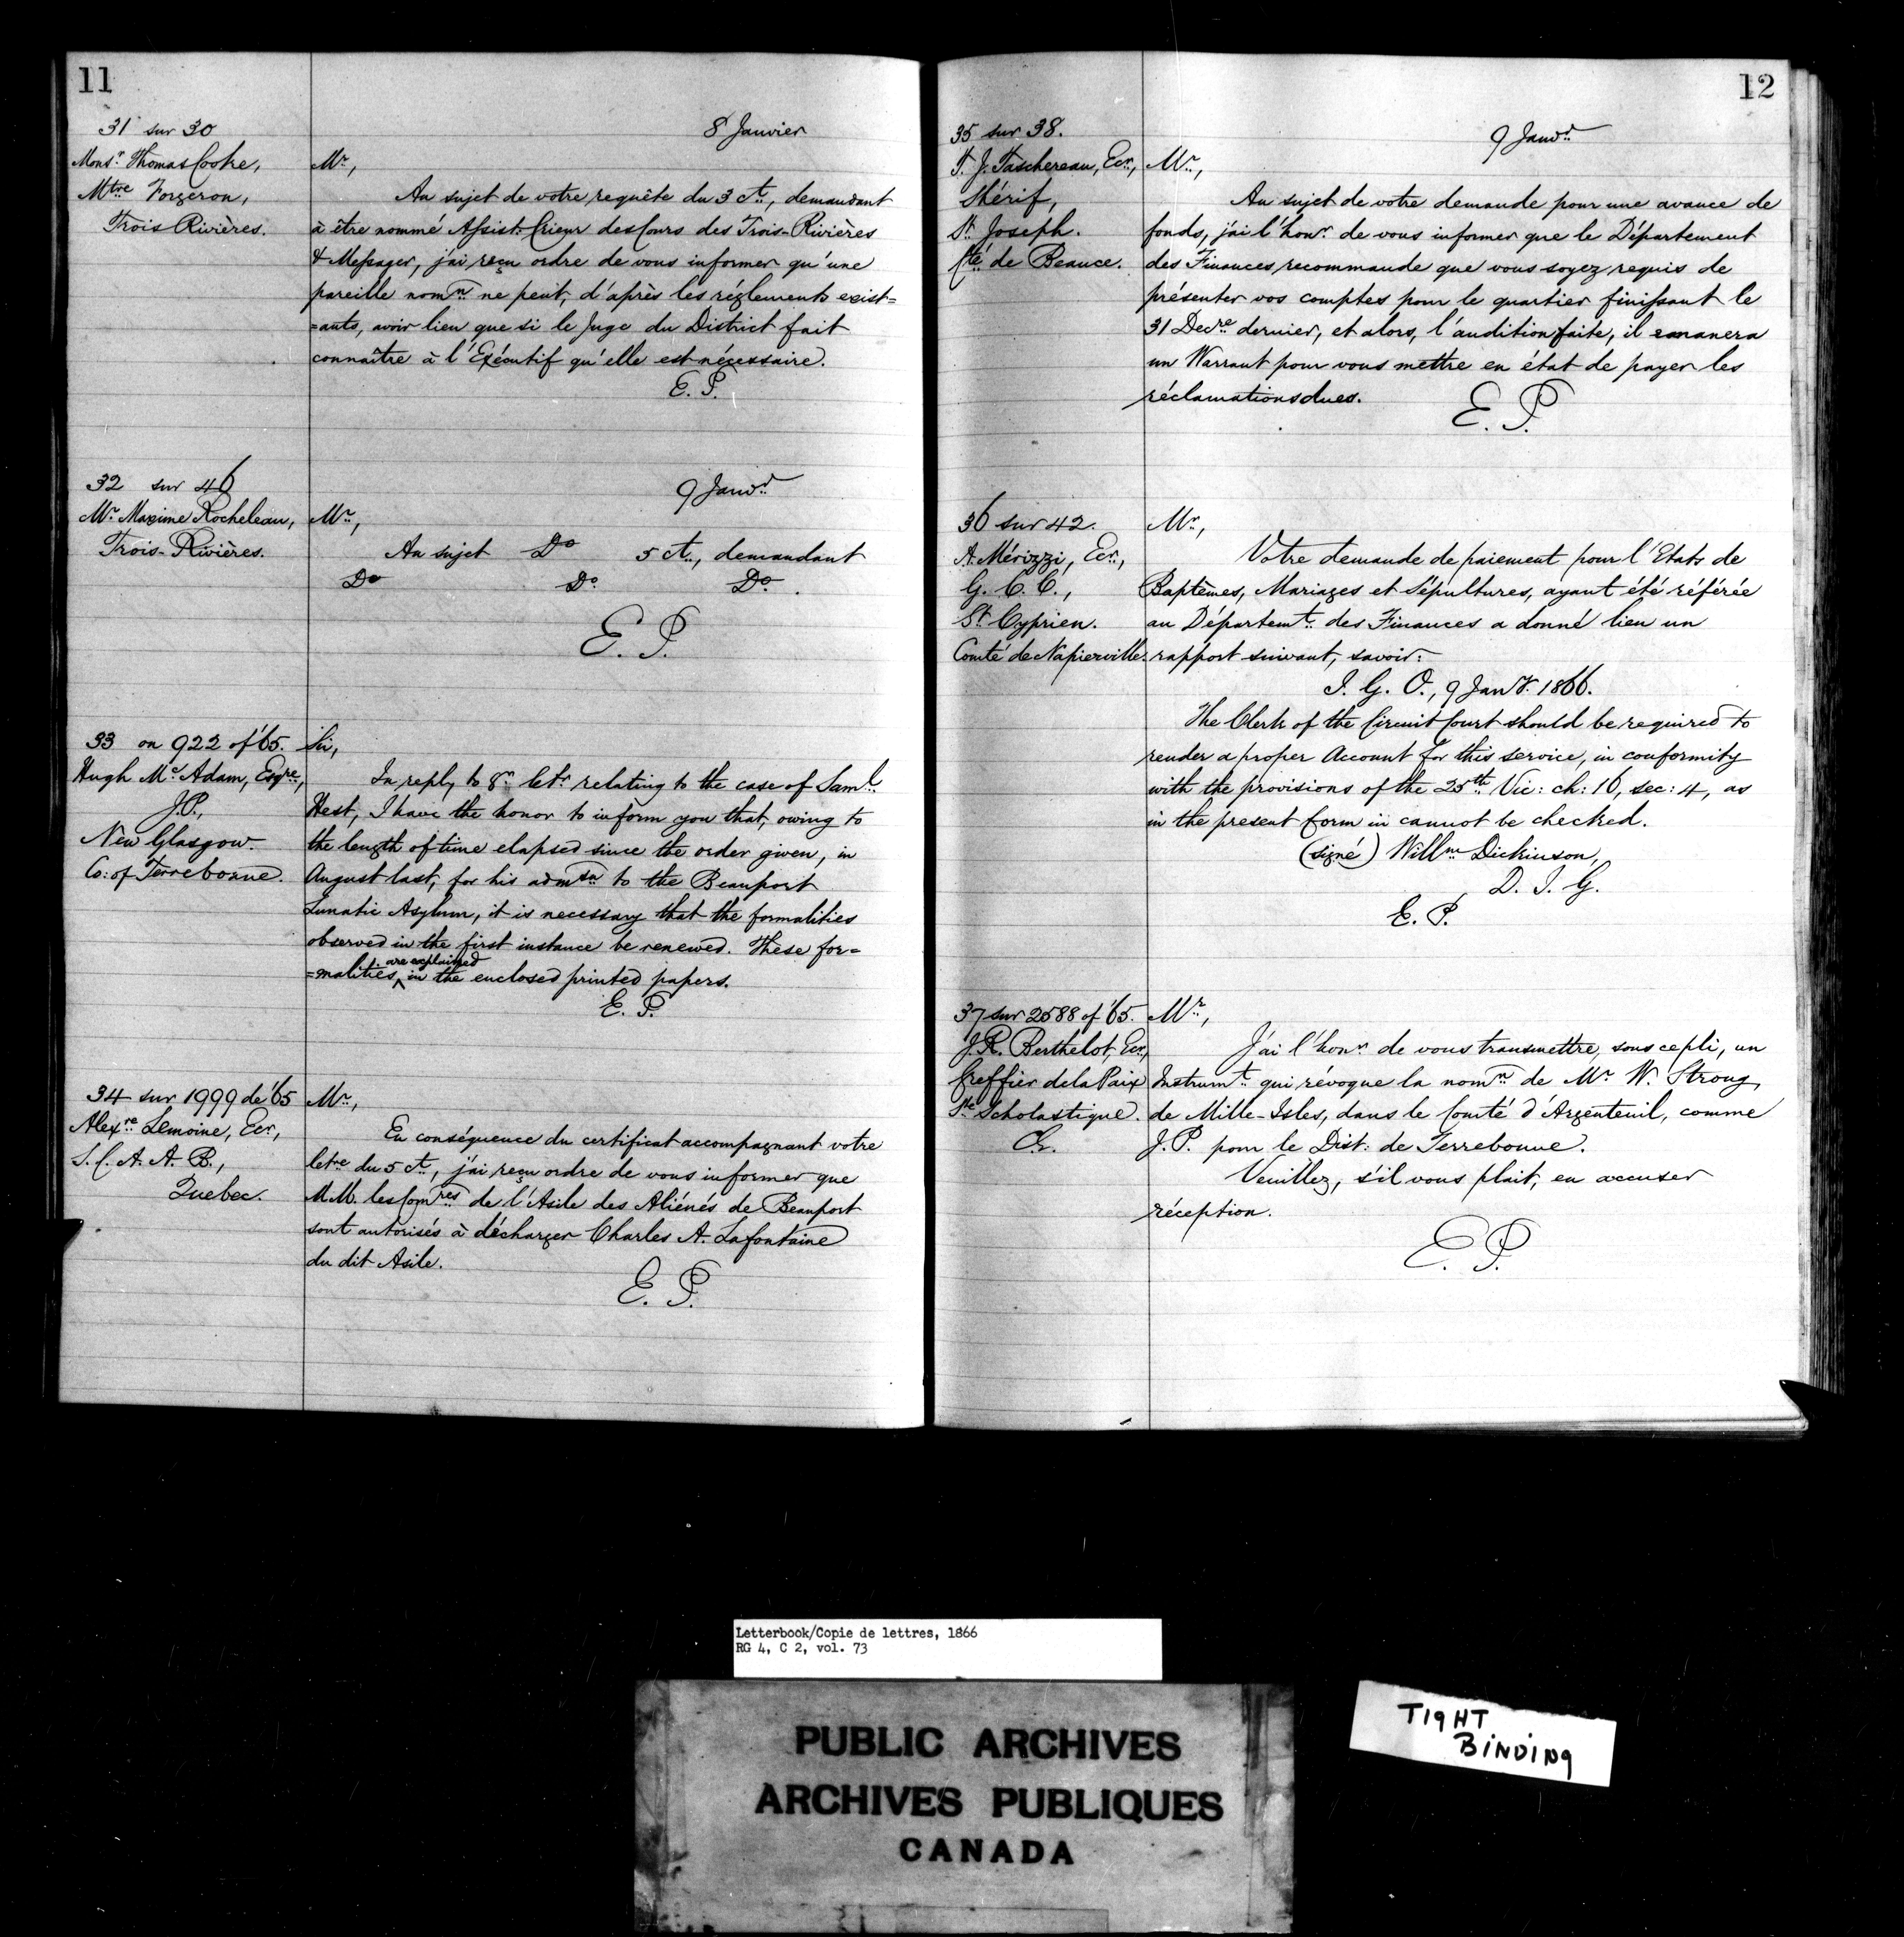 11
31 sur 30
8 Janvier
Monsr. Thomas Cooke,
Mtre Forgeron,
Trois Rivières.
Mr,
Au sujet de votre requête du 3 ct., demandant
à être nommé Assist. Crieur des Cours des Trois-Rivières
& Messager, j'ai reçu ordre de vous informer qu'une
pareille nomn. ne peut, d'après les réglements exist=
=ants, avoir lieu que si le Juge du District fait
connaître à l'Exécutif qu'elle est nécessaire.
E. P.
32 sur 46
9 Janvr.
Mr. Maxime Rocheleau,
Trois-Rivières.
Mr.,
Au sujet Do 5 ct., demandant
Do Do. Do.
E. P.
33 on 922 of '65.
Hugh Mc.Adam, Esqre.,
J.P.,
New Glasgow.
Co: of Terrebonne.
Sir,
In reply to yr. letr. relating to the case of Saml.
Hest, I have the honor to inform you that, owing to
the length of time elapsed since the order given, in
August last, for his admson to the Beauport
Lunatic Asylum, it is necessary that the formalities
observed in the first instance be renewed. These for=
=malities are explained in the enclosed printed papers.
E. P.
34 sur 1999 de '65
Alexre. Lemoine, Ecr,
S. C. A. A. B.,
Quebec.
Mr.,
En conséquence du certificat accompagnant votre
letre du 5 ct., j'ai reçu ordre de vous informer que
M.M. les Comres de l'Asile des Aliénés de Beauport
sont autorisés à décharger Charles A. Lafontaine
du dit Asile.
E. P.
12
35 sur 38.
9 Janvr.
T. J. Taschereau, Ecr.,
Shérif,
St. Joseph.
Cté. de Beauce.
Mr.,
Au sujet de votre demande pour une avance de
fonds, j'ai l'honr. de vous informer que le Département
des Finances recommande que vous soyez requis de
présenter vos comptes pour le quartier finissant le
31 Decre. dernier, et alors, l'audition faite, il emanera
un Warrant pour vous mettre en état de payer les
réclamations dues.
E. P.
36 sur 42.
A. Mérizzi, Ecr.,
G. C. C.,
St. Cyprien.
Comté de Napierville.
Mr.,
Votre demande de paiement pour l'Etats de
Baptêmes, Mariages et Sépultures, ayant été référée
au Départemt. des Finances a donné lieu un
rapport suivant, savoir:
I. G. O., 9 Jany. 1866.
The Clerk of the Circuit Court should be required to
render a proper Account for this service, in conformity
with the provisions of the 25th. Vic: ch: 16, sec: 4, as
in the present form it cannot be checked.
(signé) Willm. Dickinson,
D. I. G.
E. P.
37 sur 2588 of '65.
J. R. Berthelot, Ecr,
Greffier de la Paix
Ste. Scholastique.
Mr.,
J'ai l'honr. de vous transmettre, sous ce pli, un
Instrumt. qui révoque la nomn. de Mr. W. Strong,
de Mille-Isles, dans le Comté d'Argenteuil, comme
J. P. pour le Dist: de Terrebonne.
Veuillez, s'il vous plait, en accuser
réception.
E. P.
Letterbook/Copie de lettres, 1866
RG 4, C 2, vol. 73
PUBLIC ARCHIVES
ARCHIVES PUBLIQUES
CANADA
TIGHT
BINDING